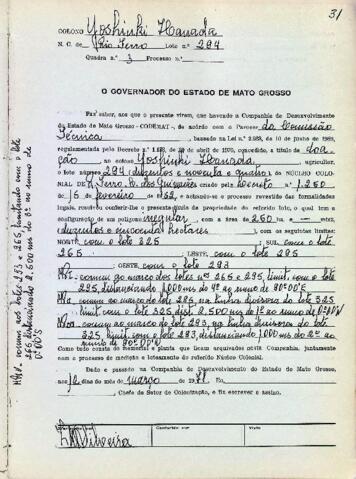 31
COLONO Yoshinki Hanada
N. C. de Rio Ferro Lote n.º 294
Quadra n.º 3 Processo n.º
O GOVERNADOR DO ESTADO DE MATO GROSSO
Faz saber, aos que a presente virem, que havendo a Companhia de Desenvolvimento
do Estado de Mato Grosso - CODEMAT -, de acordo com o Parecer da Comissão
Técnica, baseado na Lei n.º
regulamentada pelo Decreto n.º de de abril de 1970, concedido, a título de doa
ção ao colono Yoshinki Hanada, agricultor,
o lote 294 (duzentos e noventa e quatro) do NÚCLEO COLO-
NIAL DE R. Ferro M. dos Guimarães criado pelo Decreto n.º 1.260
de 15 de fevereiro de 1952, e achando-se o processo revestido das formalidades
legais, resolve conferir-lhe o presente título de propriedade do referido lote, o qual tem a
configuração de um polígono regular, com a área de 250 ha. — m2
(duzentos e cincoenta hectares), com os seguintes limites:
NORTE com o lote 325; SUL com o lote
265; LESTE com o lote 295
OESTE com o lote 293
comum ao marco dos lotes nºs 265 e 295, limit. com o lote
225, distanciando 1.000 ms do 4º ao anno de 90º00'E
comum ao marco do lote 295, na linha divisora do lote 325
limit com o lote 325, dist. 2.500 ms do 1º ao anno de 0º00'N
comum ao marco do lote 293, na linha divisora do lote
325, limit com o lote 293, distanciando 1.000 ms do 2º ao
anno de 90º00'W
comum aos lotes 293 e 265, limitando com o lote
265, distanciando 2.500 ms do 3º ao rumo de
0º00'S
Como tudo consta do memorial e planta que ficam arquivados nesta Companhia, juntamente
com o processo de medição e loteamento do referido Núcleo Colonial.
Dado e passado na Companhia de Desenvolvimento do Estado de Mato Grosso,
aos 12 dias de março de 1971. Eu,
Chefe do Setor de Colonização, o fiz escrever e assino.
Silveira
Conferido por
Visto